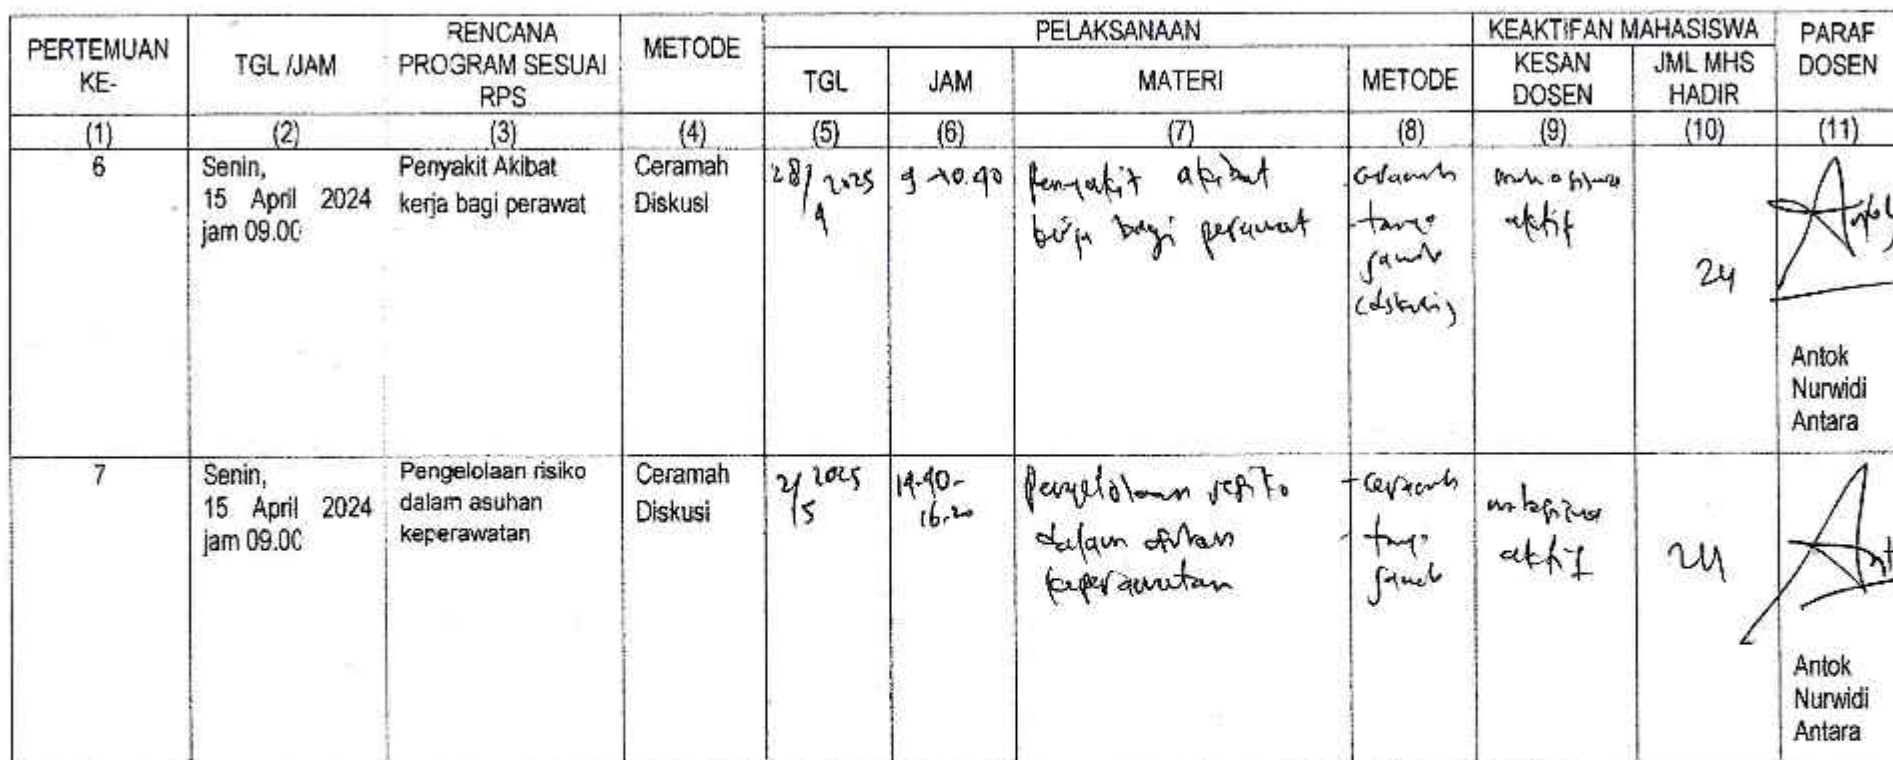 PERTEMUAN KE-
TGL /JAM
RENCANA PROGRAM SESUAI RPS
METODE
PELAKSANAAN
KEAKTIFAN MAHASISWA
PARAF DOSEN
TGL
JAM
MATERI
METODE
KESAN DOSEN
JML MHS HADIR
(1) (2) (3) (4) (5) (6) (7) (8) (9) (10) (11)
6
Senin,
15 April 2024
jam 09.00
Penyakit Akibat
kerja bagi perawat
Ceramah
Diskusi
28/4 2025
9 - 10.40
Penyakit akibat
kerja bagi perawat
ceramah
- tanya
jawab
(diskusi)
mahasiswa
aktif
24
Antok
Nurwidi
Antara
7
Senin,
15 April 2024
jam 09.00
Pengelolaan risiko
dalam asuhan
keperawatan
Ceramah
Diskusi
2/5 2025
14.40-
16.20
Pengelolaan resiko
dalam asuhan
keperawatan
- ceramah
- tanya
jawab
mahasiswa
aktif
24
Antok
Nurwidi
Antara